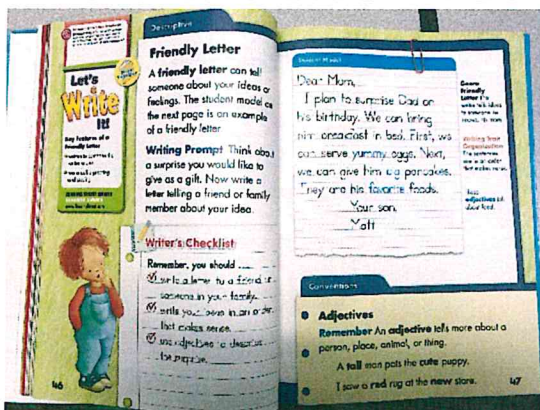 Let's
Write
It!
Key Features of a
Friendly Letter
46
Descriptive
Friendly Letter
A friendly letter can tell
someone about your ideas or
feelings. The student model on
the next page is an example
of a friendly letter.
Writing Prompt Think about
a surprise you would like to
give as a gift. Now write a
letter telling a friend or family
member about your idea.
Writer's Checklist
Remember, you should ...
write a letter to a friend or
someone in your family.
write your ideas in an order
that makes sense.
use adjectives to describe
the surprise.
Student Model
Dear Mom,
I plan to surprise Dad on
his birthday. We can bring
him breakfast in bed. First, we
can serve yummy eggs. Next,
we can give him big pancakes.
They are his favorite foods.
Your son,
Matt
Genre
Friendly
Letter
Writing Trait
Organization
The sentences
adjectives
Conventions
Adjectives
Remember An adjective tells more about a
person, place, animal, or thing.
A tall man pats the cute puppy.
I saw a red rug at the new store.
47